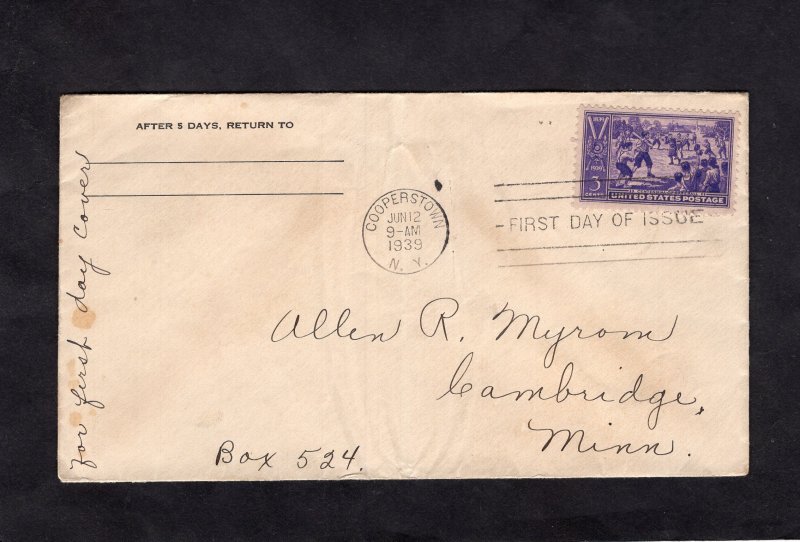 AFTER 5 DAYS, RETURN TO
for first day covers
COOPERSTOWN
JUN 12
9-AM
1939
N. Y.
FIRST DAY OF ISSUE
1839
1939
3
CENTS
CENTENNIAL
BASEBALL
UNITED STATES POSTAGE
Allen R. Myrom
Cambridge,
Minn.
Box 524.